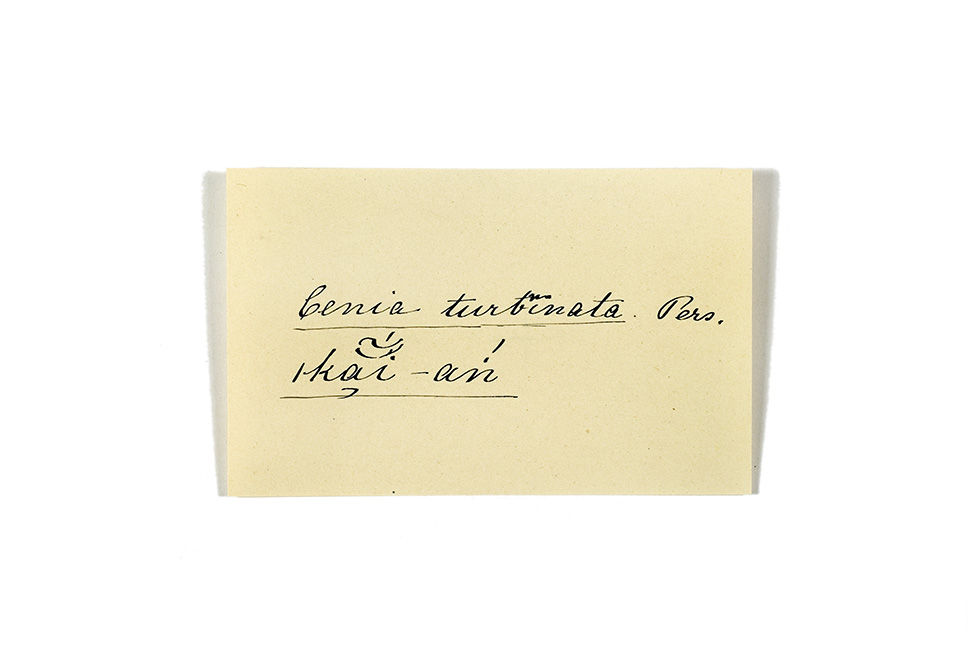 Cenia turbinata. Pers.
ǀkã̤̆í -ań